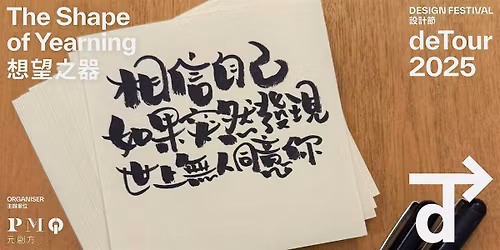 The Shape
of Yearning
想望之器
DESIGN FESTIVAL
設計節
deTour
2025
相信自己
如果突然發現
世上無人同意你
ORGANISER
主辦單位
PMQ
元創方